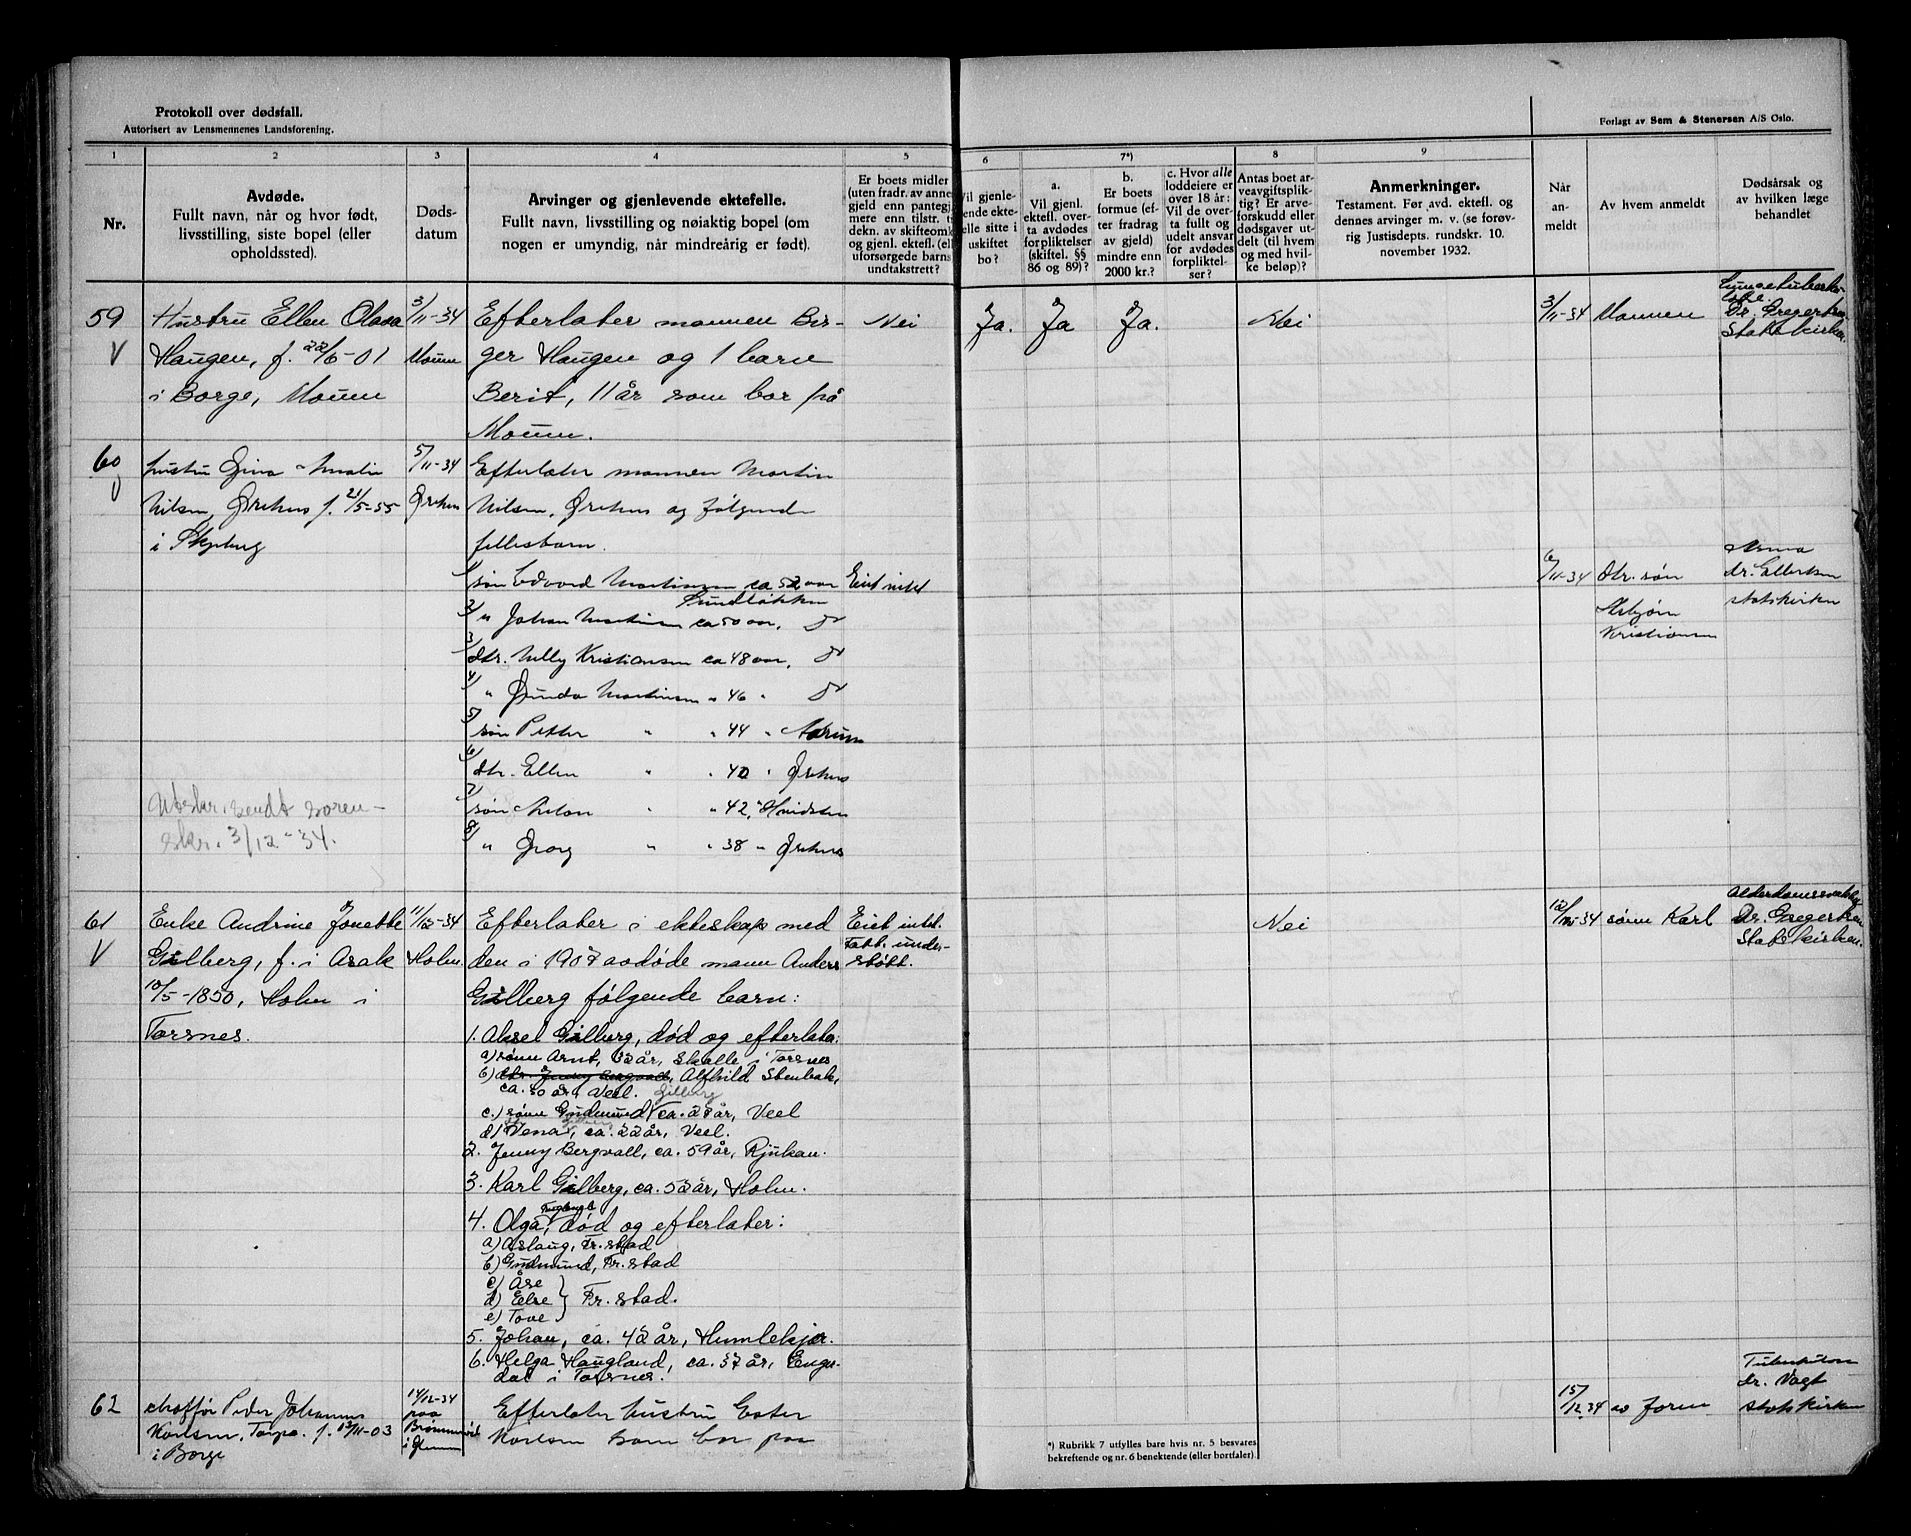 Protokoll over dødsfall.
Autorisert av Lensmennenes Landsforening.
Forlagt av Sem & Stenersen A/S Oslo.
1 2 3 4 5 6 7*) 8 9
Nr.
Avdøde.
Fullt navn, når og hvor født,
livsstilling, siste bopel (eller
opholdssted).
Døds-
datum
Arvinger og gjenlevende ektefelle.
Fullt navn, livsstilling og nøiaktig bopel (om
nogen er umyndig, når mindreårig er født).
Er boets midler
(uten fradr. av anne
gjeld enn pantegj
mere enn tilstr. t
dekn. av skifteomk
og gjenl. ektef. (ell
uforsørgede barns
undtakstrett?
Vil gjenle-
ende ekte-
elle sitte i
uskiftet
bo?
a.
Vil gjenl.
ektefl. over-
ta avdødes
forpliktelser
(skiftel. §§
86 og 89)?
b.
Er boets
formue (ef-
ter fradrag
av gjeld)
mindre enn
2000 kr.?
c. Hvor alle
loddeiere er
over 18 år:
Vil de over-
ta fullt og
udelt ansvar
for avdødes
forpliktel-
ser?
Antas boet ar-
veavgiftsplik-
tig? Er arve-
forskudd eller
dødsgaver ut-
delt (til hvem
og med hvil-
ke beløp)?
Anmerkninger.
Testament. Før avd. ektefl. og
dennes arvinger m. v. (se forøv-
rig Justisdepts. rundskr. 10.
november 1932.
Når
an-
meldt
Av hvem anmeldt
Dødsårsak og
av hvilken læge
behandlet
59
V
Hustru Ellen Olava
Haugen, f. 22/6-01
i Borge, Moum
3/11-34
Moum
Efterlater mannen Bir-
ger Haugen og 1 barn
Berit, 11 år som bor på
Moum.
Nei
Ja. Ja Ja.
Nei
3/11-34 Mannen
Dr. Gregertsen
Statskirken
60
V
hustru Gina Amalie
Nilsen, Ørehus f. 21/5-55
i Skjeberg
Utskr. sendt soren-
skr. 3/12-34.
5/11-34
Ørehus
Efterlater mannen Martin
Nilsen, Ørehus og følgende
fellesbarn.
1/ søn Edvard Martinsen ca 52 aar
Sundløkken
2/ " Johan Martinsen ca 50 aar,
3/ dtr. Nelly Kristiansen ca 48 aar,
4/ " Gunda Martinsen " 46 "
5/ søn Petter " " 44 " Moum
6/ dtr. Ellen " " 40 " Ørehus
7/ søn Anton " " 42, "
8/ " Georg " " 38 " Ørehus
Eiet intet
6/11-34 dtr. søn
Asbjørn
Kristiansen
Dr. Ellertsen
statskirken
61
V
Enke Andrine Jonette
Gilberg, f. i Asak
10/5-1850, Holm i
Torsnes.
11/12-34
Holm
Efterlater i ekteskap med
den i 1907 avdøde mann Anders
Gilberg følgende barn:
1. Aksel Gilberg, død og efterlater:
a) sønn Arnt, 32 år, Skalle i Torsnes
b) dtr. Jenny Bergvall, Alfhild Stenbak,
ca. 30 år, Veel. Gilberg
c.) sønn Gudmund ca. 28 år, Veel
d) Vena, ca. 22 år, Veel.
2. Jenny Bergvall, ca. 59 år, Rjukan.
3. Karl Gilberg, ca. 53 år, Holm.
4. Olga, død og efterlater:
a) Aslaug, Fr.stad
b) Gudmund, Fr.stad
c) Åse
d) Else } Fr.stad.
e) Tove
5. Johan, ca. 42 år, Humlekjær.
6. Helga Haugland, ca. 37 år, Enge-
dal i Torsnes.
Eiet intet.
Fatt. under-
støtt.
Nei
12/12-34 sønn Karl
Alderdomssvakhet
Dr. Gregertsen
Statskirken.
62
chaffør Peder Johannes
Karlsen, Torpe. f. 13/11-03
i Borge
14/12-34
paa
i Glemmen
Efterlater hustru Ester
Karlsen som bor paa
15/12-34 av
Tuberkulose
dr. Vogt
statskirken
*) Rubrikk 7 utfylles bare hvis nr. 5 besvares
bekreftende og nr. 6 benektende (eller bortfaller).